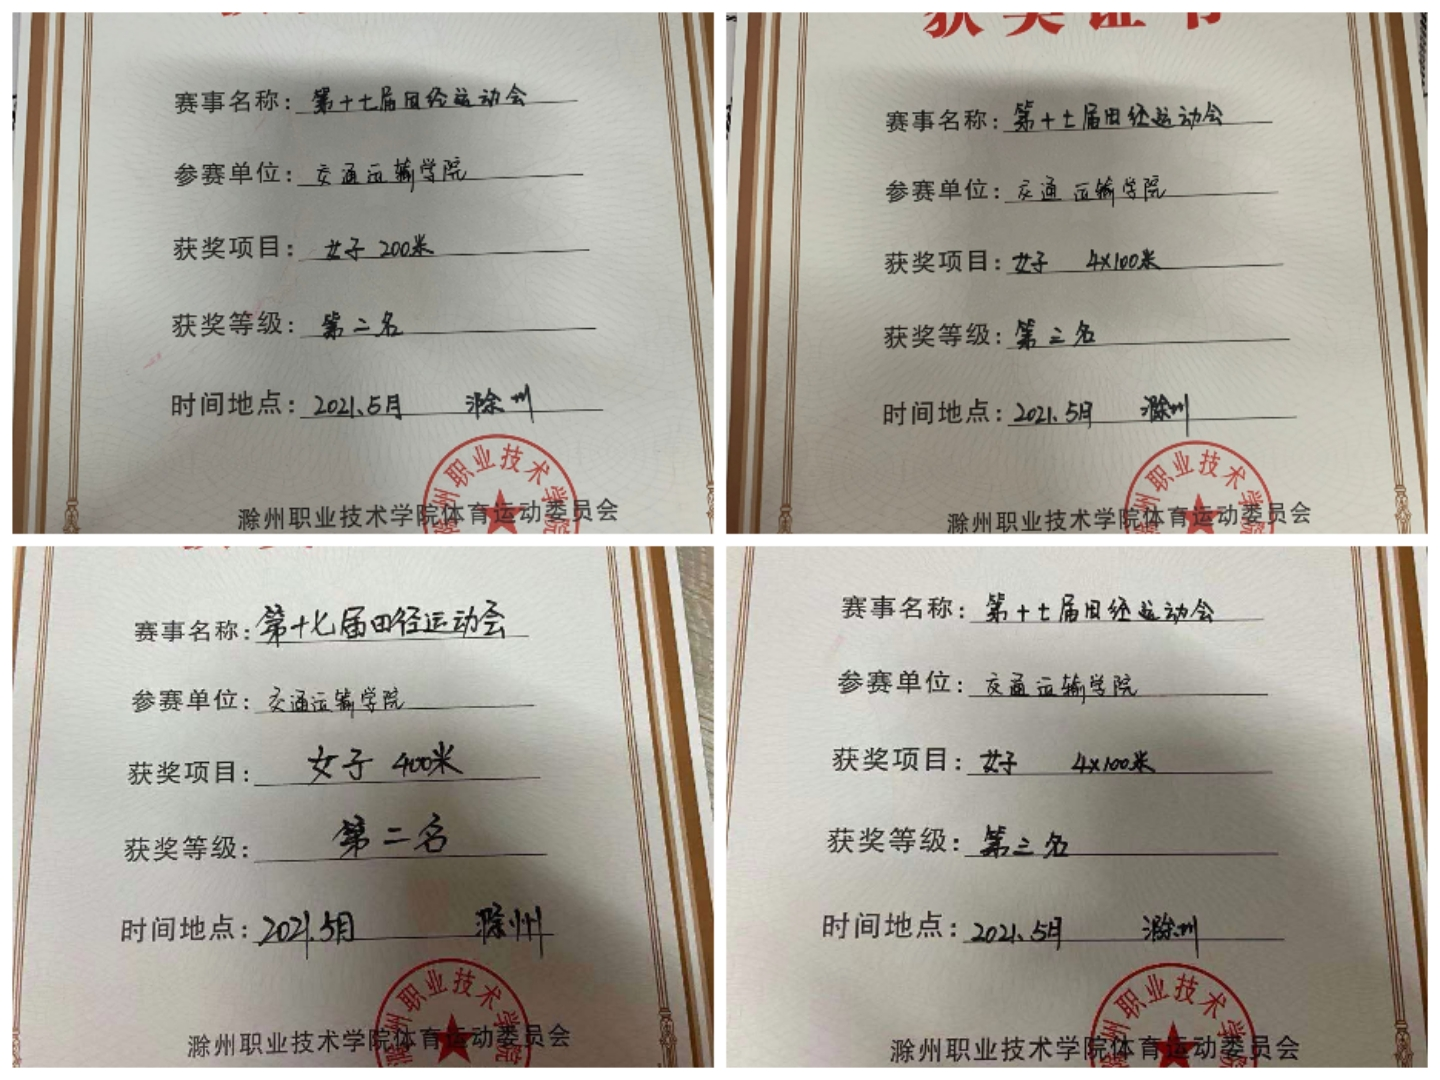 赛事名称：第十七届田径运动会
参赛单位：交通运输学院
获奖项目：女子 200米
获奖等级：第二名
时间地点：2021.5月 滁州
滁州职业技术学院
滁州职业技术学院体育运动委员会
获奖证书
赛事名称：第十七届田径运动会
参赛单位：交通运输学院
获奖项目：女子 4×100米
获奖等级：第三名
时间地点：2021.5月 滁州
滁州职业技术学院
滁州职业技术学院体育运动委员会
赛事名称：第十七届田径运动会
参赛单位：交通运输学院
获奖项目：女子 400米
获奖等级：第二名
时间地点：2021.5月 滁州
滁州职业技术学院
滁州职业技术学院体育运动委员会
赛事名称：第十七届田径运动会
参赛单位：交通运输学院
获奖项目：女子 4×100米
获奖等级：第三名
时间地点：2021.5月 滁州
滁州职业技术学院
滁州职业技术学院体育运动委员会